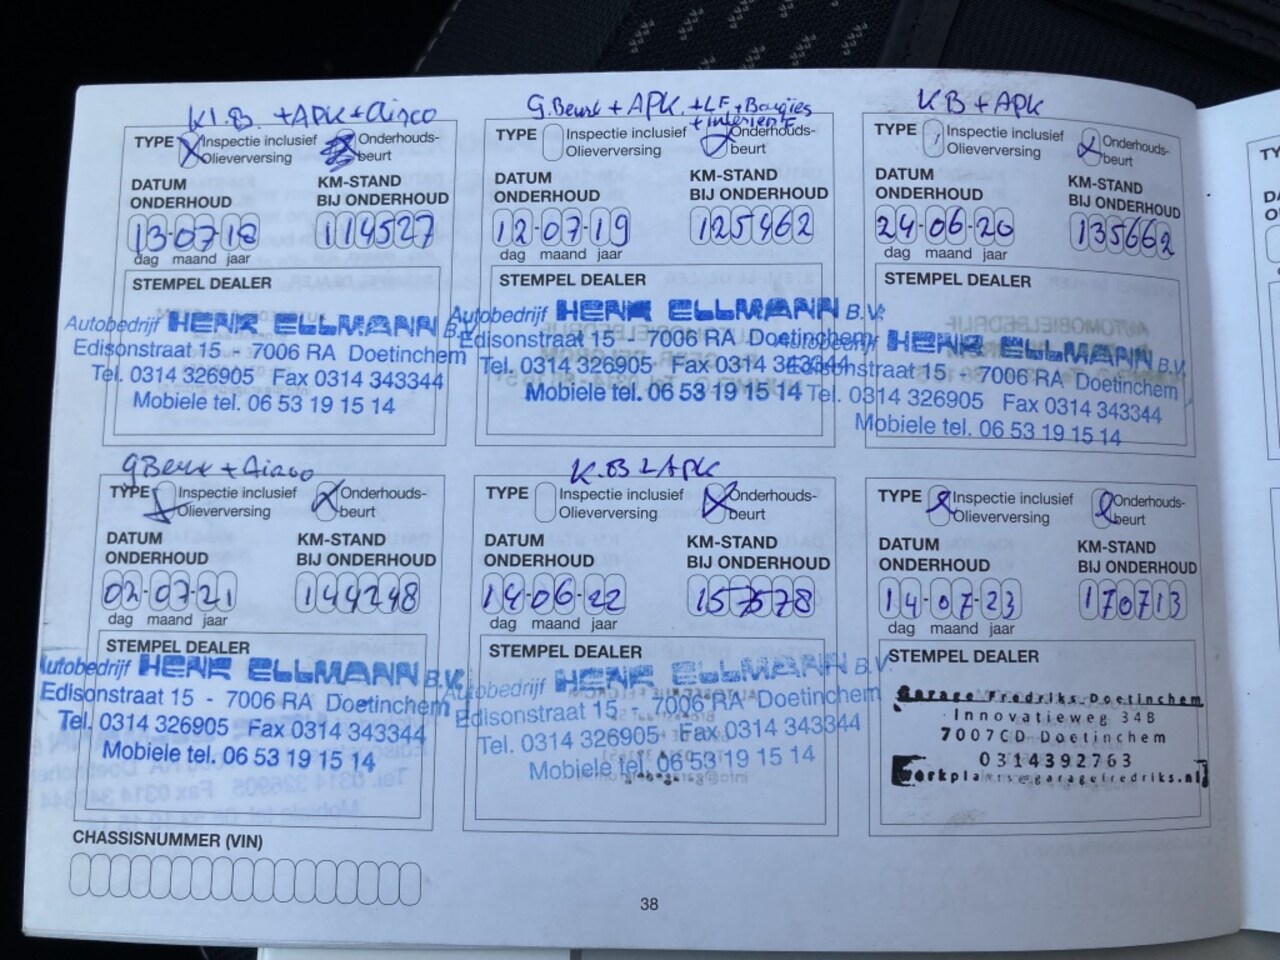 Kl.B. +APK+Airco
TYPE Inspectie inclusief Olieverversing Onderhouds-beurt
DATUM ONDERHOUD
KM-STAND BIJ ONDERHOUD
13-07-18 114527
dag maand jaar
STEMPEL DEALER
Autobedrijf HENK ELLMANN B.V.
Edisonstraat 15 - 7006 RA Doetinchem
Tel. 0314 326905 Fax 0314 343344
Mobiele tel. 06 53 19 15 14
G.Beurt + APK. +LF +Bougies
+ interieur F
TYPE Inspectie inclusief Olieverversing Onderhouds-beurt
DATUM ONDERHOUD
KM-STAND BIJ ONDERHOUD
12-07-19 125462
dag maand jaar
STEMPEL DEALER
Autobedrijf HENK ELLMANN B.V.
Edisonstraat 15 - 7006 RA Doetinchem
Tel. 0314 326905 Fax 0314 343344
Mobiele tel. 06 53 19 15 14
KB + APK
TYPE Inspectie inclusief Olieverversing Onderhouds-beurt
DATUM ONDERHOUD
KM-STAND BIJ ONDERHOUD
24-06-20 135662
dag maand jaar
STEMPEL DEALER
Autobedrijf HENK ELLMANN B.V.
Edisonstraat 15 - 7006 RA Doetinchem
Tel. 0314 326905 Fax 0314 343344
Mobiele tel. 06 53 19 15 14
gBeurt + Airco
TYPE Inspectie inclusief Olieverversing Onderhouds-beurt
DATUM ONDERHOUD
KM-STAND BIJ ONDERHOUD
02-07-21 144248
dag maand jaar
STEMPEL DEALER
Autobedrijf HENK ELLMANN B.V.
Edisonstraat 15 - 7006 RA Doetinchem
Tel. 0314 326905 Fax 0314 343344
Mobiele tel. 06 53 19 15 14
K.B + APK
TYPE Inspectie inclusief Olieverversing Onderhouds-beurt
DATUM ONDERHOUD
KM-STAND BIJ ONDERHOUD
14-06-22 157578
dag maand jaar
STEMPEL DEALER
Autobedrijf HENK ELLMANN B.V.
Edisonstraat 15 - 7006 RA Doetinchem
Tel. 0314 326905 Fax 0314 343344
Mobiele tel. 06 53 19 15 14
TYPE Inspectie inclusief Olieverversing Onderhouds-beurt
DATUM ONDERHOUD
KM-STAND BIJ ONDERHOUD
14-07-23 170713
dag maand jaar
STEMPEL DEALER
Garage Fredriks Doetinchem
Innovatieweg 34B
7007CD Doetinchem
0314392763
werkplaats@garagefredriks.nl
CHASSISNUMMER (VIN)
38